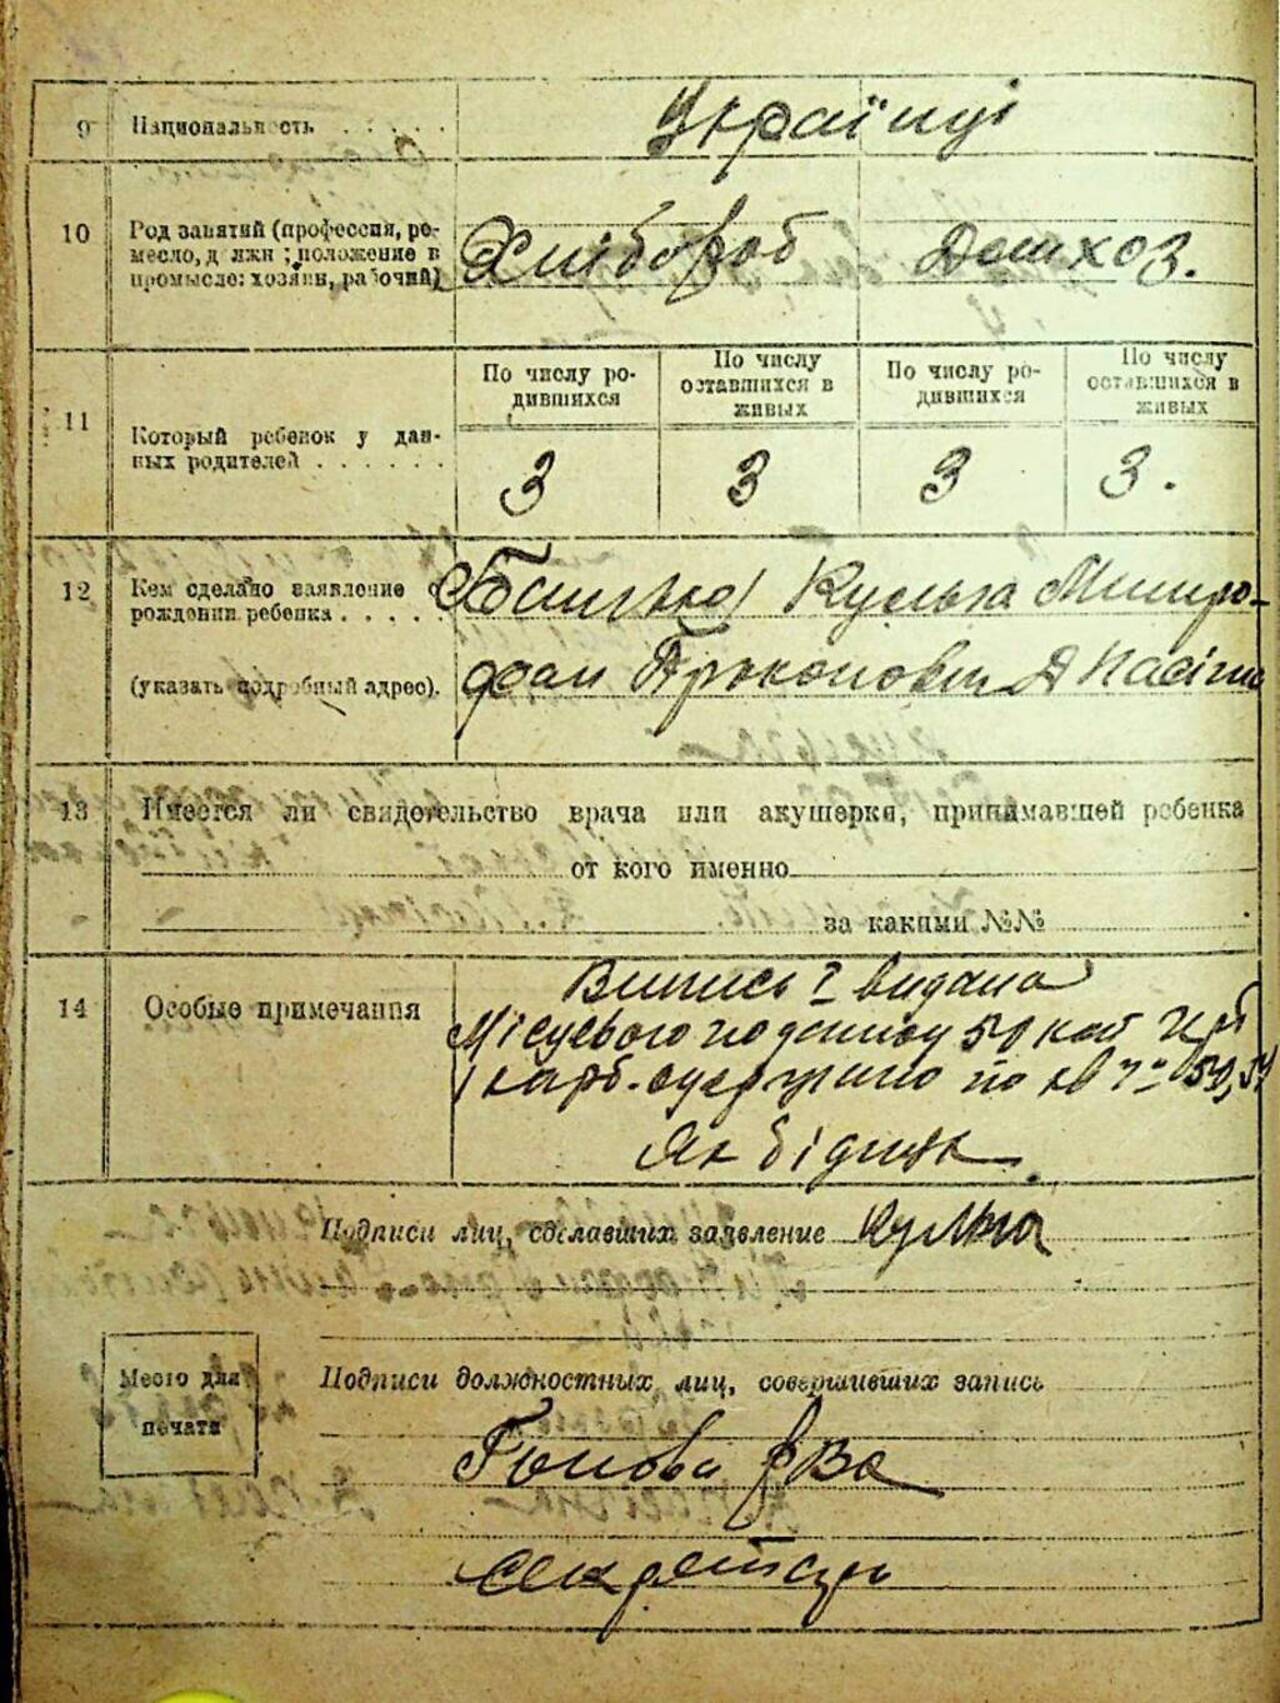 9 Национальность . . . . . Українці
10 Род занятий (профессия, ре-
месло, должн ; положение в
промысле: хозяин, рабочий) Хлібороб Домхоз.
По числу ро-
дившихся
По числу
оставшихся в
живых
По числу ро-
дившихся
По числу
оставшихся в
живых
11 Который ребенок у дан-
ных родителей . . . . . . 3 3 3 3.
12 Кем сделано заявление о
рождении ребенка . . . . . Батько Кульга Митро-
(указать подробный адрес). фан Прокопович
13 Имеется ли свидетельство врача или акушерки, принимавшей ребенка
от кого именно
за какими №№
14 Особые примечания
Випись видана
Місцевого податку 50 коп
1 карб. одержано по кв
Як бідняк
Подписи лиц, сделавших заявление Кульга
Место для
печати
Подписи должностных лиц, совершивших запись
Голова
Секретарь